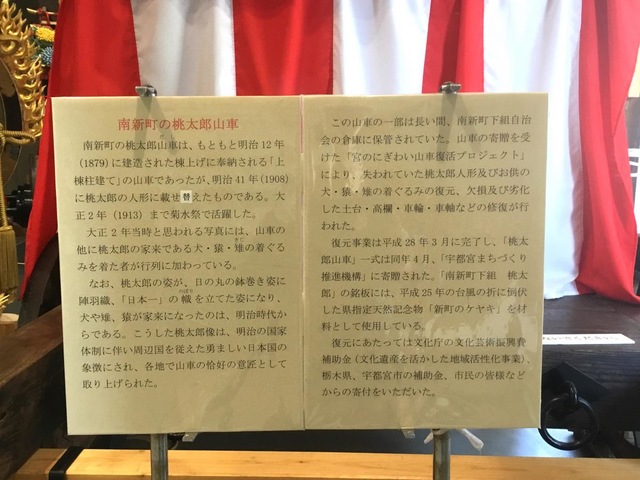 南新町の桃太郎山車
南新町の桃太郎山車は、もともと明治12年
(1879) に建造された棟上げに奉納される「上
棟柱建て」の山車であったが、明治41年(1908)
に桃太郎の人形に載せ替えたものである。大
正2年 (1913) まで菊水祭で活躍した。
大正2年当時と思われる写真には、山車の
他に桃太郎の家来である犬・猿・雉の着ぐる
みを着た者が行列に加わっている。
なお、桃太郎の姿が、日の丸の鉢巻き姿に
陣羽織、「日本一」の幟を立てた姿になり、
犬や雉、猿が家来になったのは、明治時代か
らである。こうした桃太郎像は、明治の国家
体制に伴い周辺国を従えた勇ましい日本国の
象徴にされ、各地で山車の恰好の意匠として
取り上げられた。
この山車の一部は長い間、南新町下組自治
会の倉庫に保管されていた。山車の寄贈を受
けた「宮のにぎわい山車復活プロジェクト」
により、失われていた桃太郎人形及びお供の
犬・猿・雉の着ぐるみの復元、欠損及び劣化
した土台・高欄・車輪・車軸などの修復が行
われた。
復元事業は平成28年3月に完了し、「桃太
郎山車」一式は同年4月、「宇都宮まちづくり
推進機構」に寄贈された。「南新町下組 桃太
郎」の銘板には、平成25年の台風の折に倒伏
した県指定天然記念物「新町のケヤキ」を材
料として使用している。
復元にあたっては文化庁の文化芸術振興費
補助金(文化遺産を活かした地域活性化事業)、
栃木県、宇都宮市の補助金、市民の皆様など
からの寄付をいただいた。